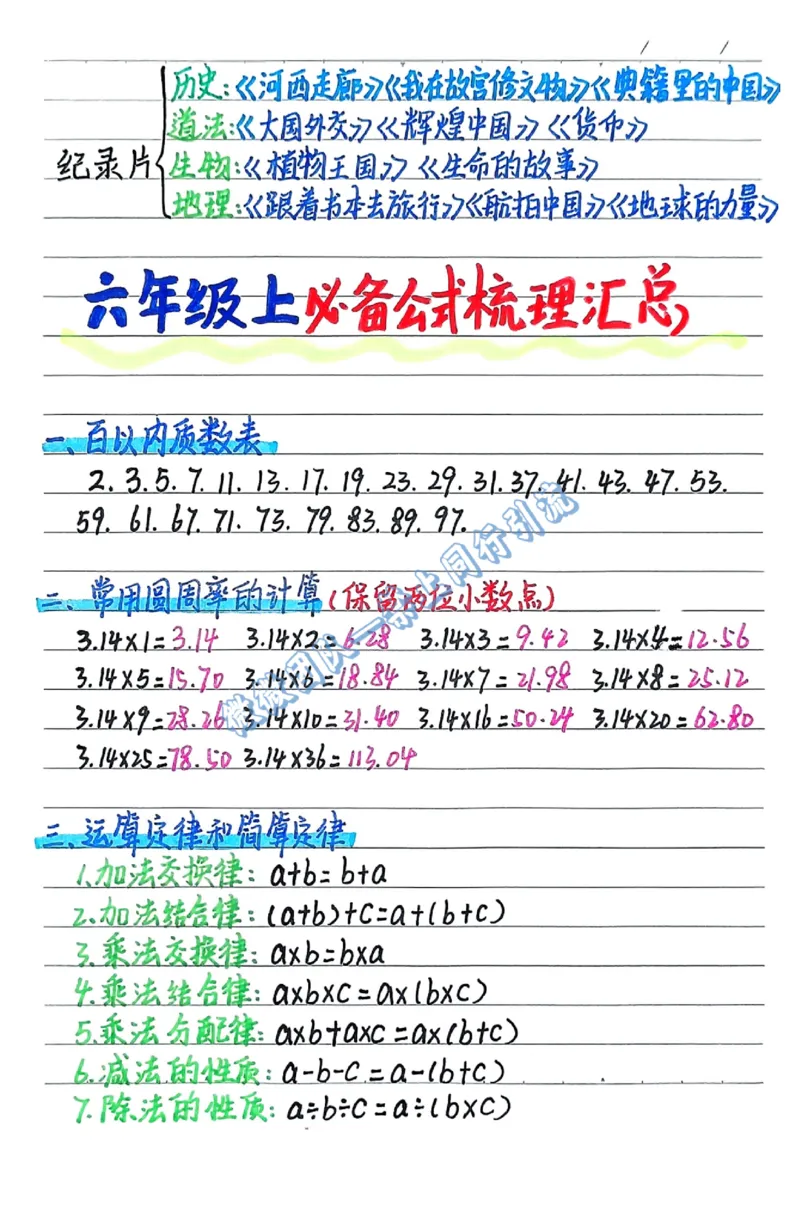 历史:《河西走廊》《我在故宫修文物》《典籍里的中国》
道法:《大国外交》《辉煌中国》《货币》
纪录片
生物:《植物王国》《生命的故事》
地理:《跟着书本去旅行》《航拍中国》《地球的力量》
六年级上必备公式梳理汇总
一、百以内质数表
2. 3. 5. 7. 11. 13. 17. 19. 23. 29. 31. 37. 41. 43. 47. 53.
59. 61. 67. 71. 73. 79. 83. 89. 97.
二、常用圆周率的计算(保留两位小数点)
3.14×1=3.14 3.14×2=6.28 3.14×3=9.42 3.14×4=12.56
3.14×5=15.70 3.14×6=18.84 3.14×7=21.98 3.14×8=25.12
3.14×9=28.26 3.14×10=31.40 3.14×16=50.24 3.14×20=62.80
3.14×25=78.50 3.14×36=113.04
三、运算定律和简算定律
1.加法交换律: a+b=b+a
2.加法结合律: (a+b)+c=a+(b+c)
3.乘法交换律: a×b=b×a
4.乘法结合律: a×b×c=a×(b×c)
5.乘法分配律: a×b+a×c=a×(b+c)
6.减法的性质: a-b-c=a-(b+c)
7.除法的性质: a÷b÷c=a÷(b×c)